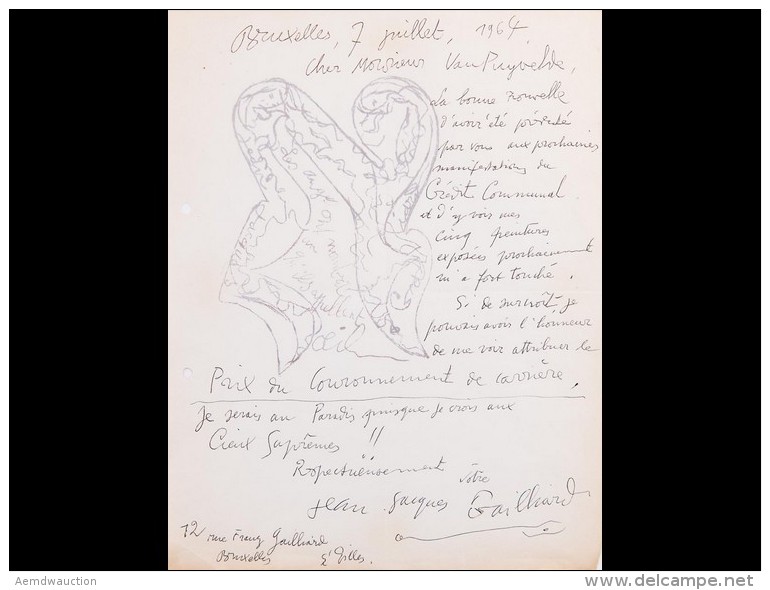 Bruxelles, 7 juillet, 1964
Cher Monsieur Van Puyvelde,
La bonne nouvelle
d'avoir été présenté
par vous aux prochaines
manifestations du
Crédit Communal
et d'y vois mes
cinq peintures
exposées prochainement
m'a fort touché.
Si de surcroît je
pouvais avois l'honneur
de me voir attribuer le
Prix du Couronnement de carrière,
je serais au Paradis puisque je crois aux
Cieux Suprêmes !!
Respectueusement
vôtre
Jean Jacques Gailliard
12 rue Franz Gailliard
Bruxelles St Gilles.
Aemdwauction
© delcampe.net